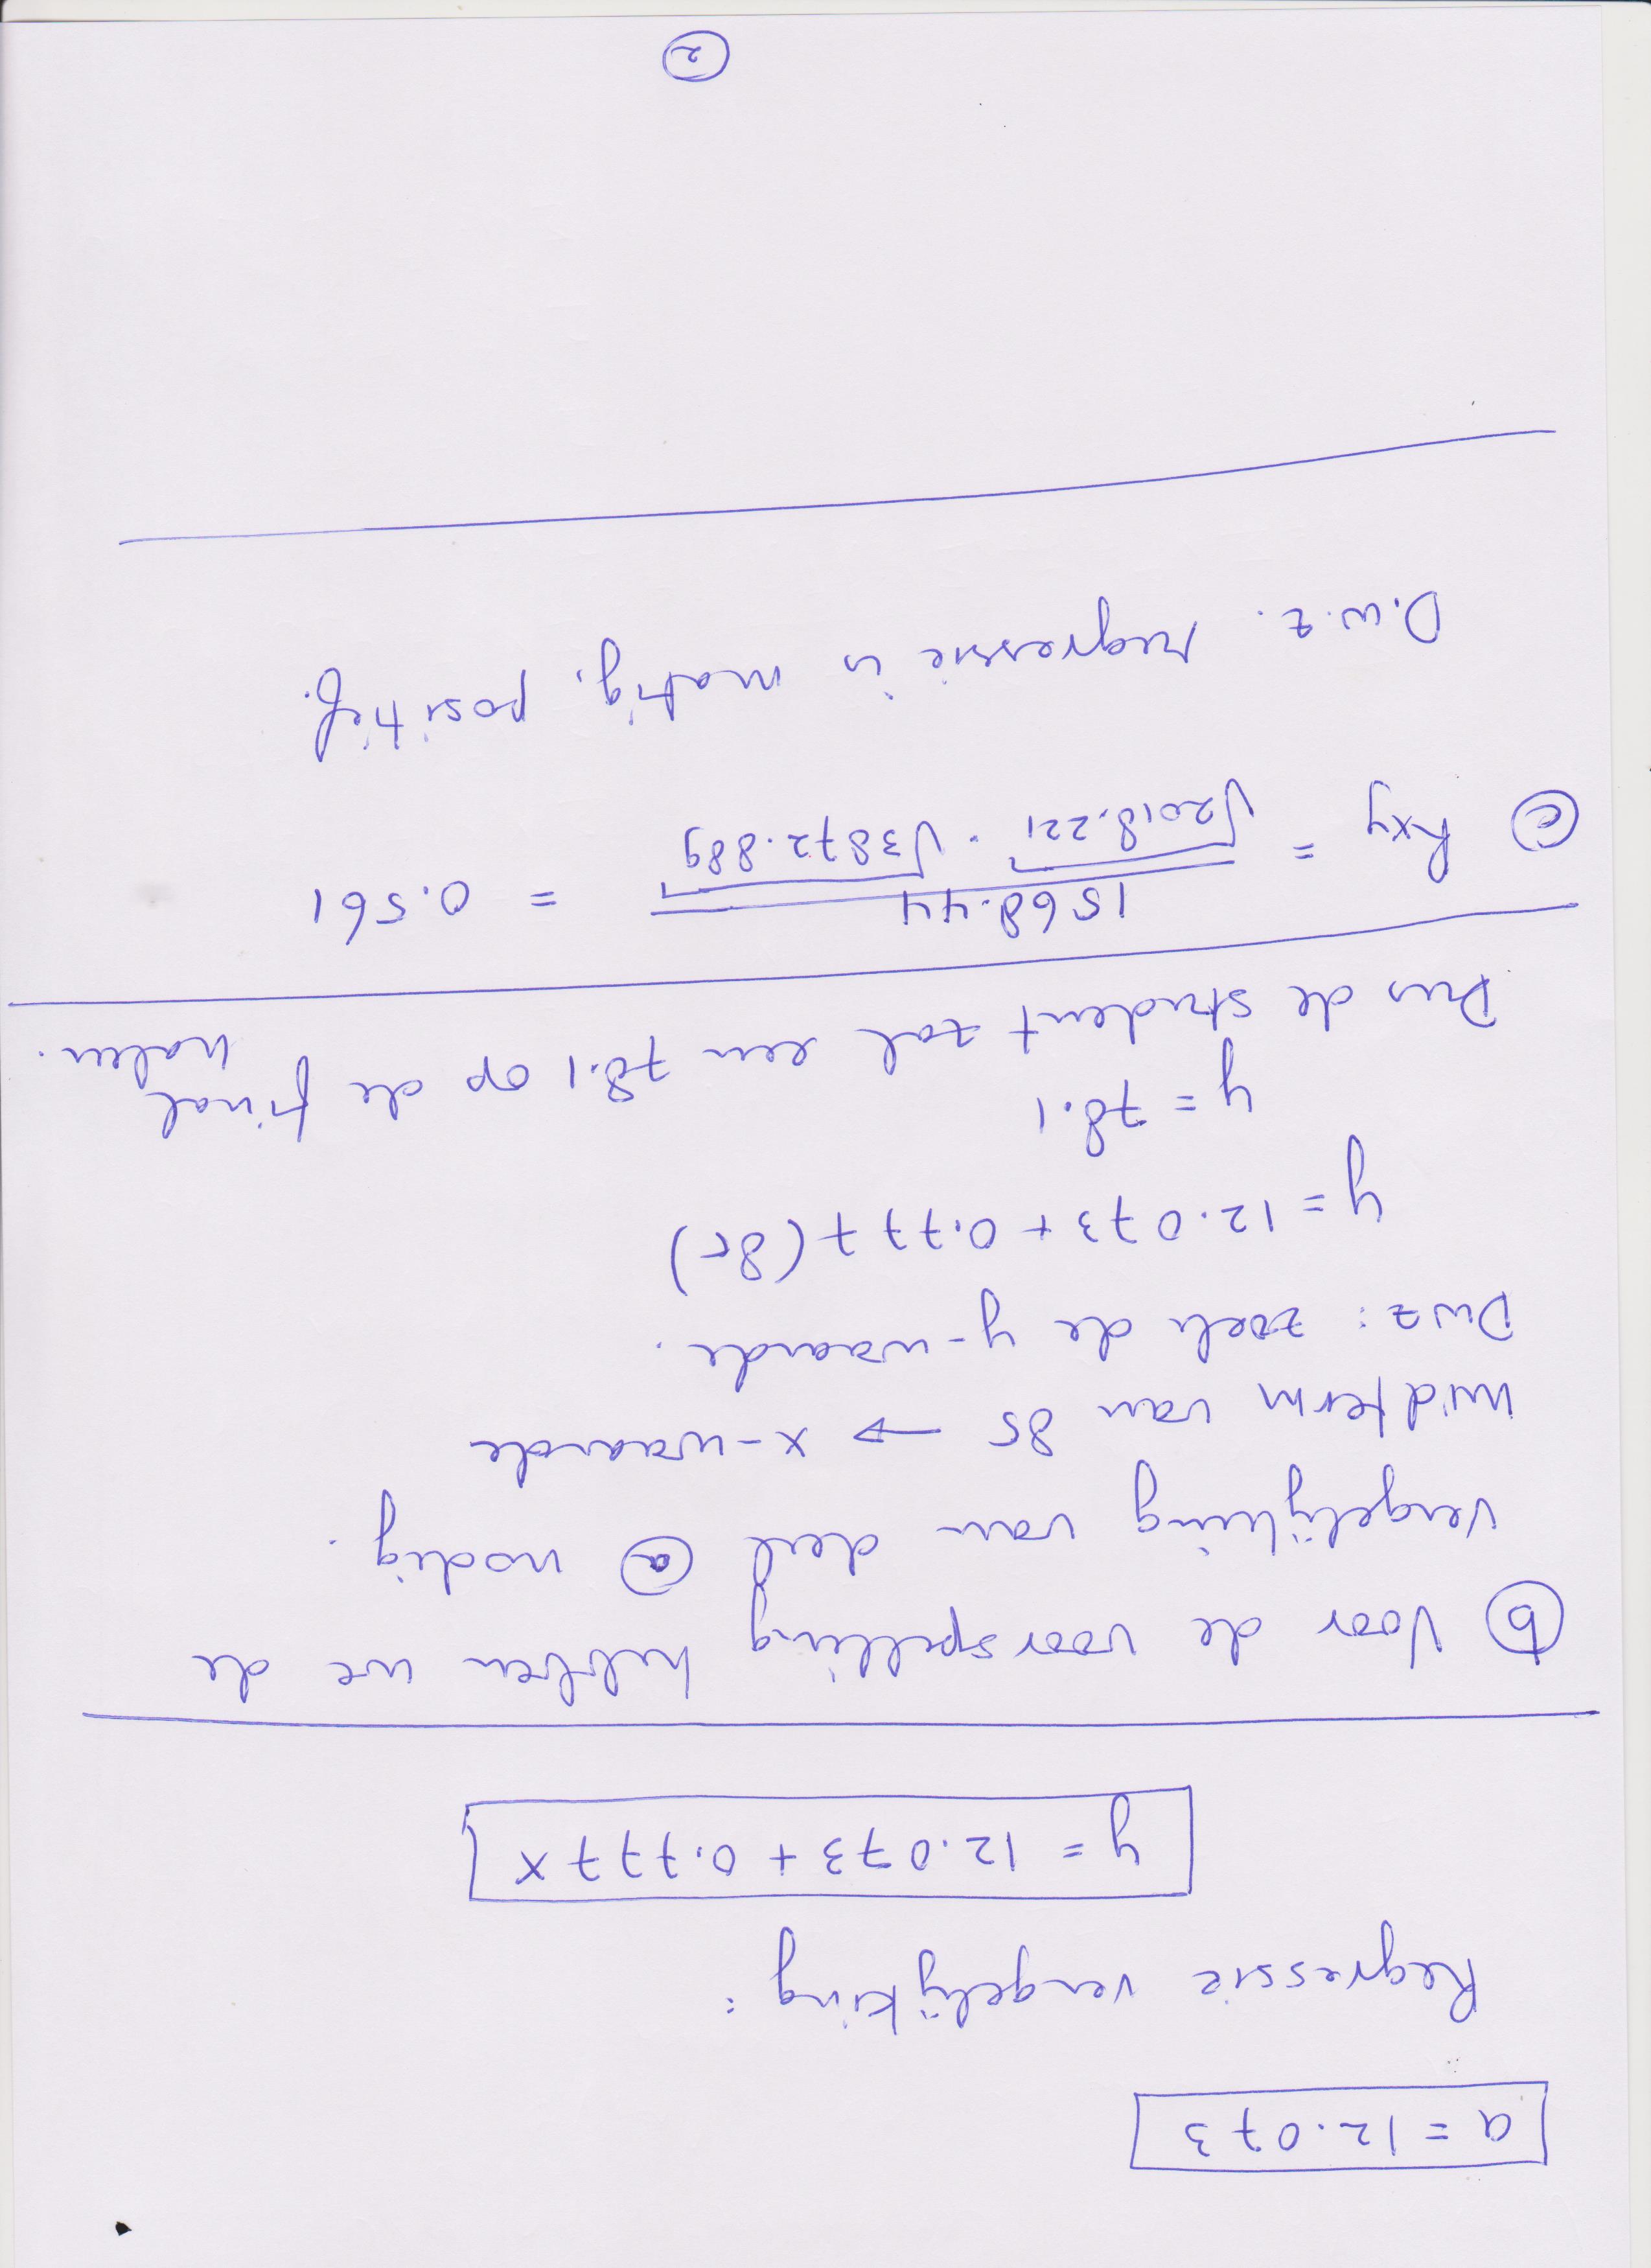 a = 12.073
Regressie vergelijking :
y = 12.073 + 0.777x
(b) Voor de voorspelling hebben we de
vergelijking van deel (a) nodig.
Midterm van 85 → x-waarde
Dwz : zoek de y-waarde.
y = 12.073 + 0.777 (85)
y = 78.1
Dus de student zal een 78.1 op de final
halen.
(c) Rxy = 1568.44 / √2018.221 · √3872.889 = 0.561
D.w.z. regressie is matig, positief.
(2)